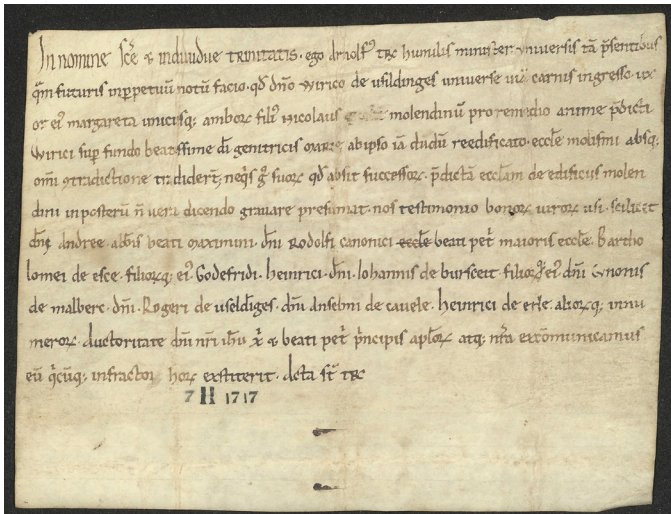 In nomine sc̄e & individue trinitatis. ego Arnolf' tr̄c humilis minister. universis tā p̄sentibus
q̄m futuris inp̄petuū notū facio. qd̄ dn̄o Wirico de usildinges universe vie carnis ingresso. ux
or ei' margareta unicusq; ambor filius Nicolaus molendinū pro remedio anime p̄dicti
Wirici sup fundo beatissime dī genitricis marie ab ipso iā dudū reedificato. eccl̄e molismi absq;
om̄i ɔtradictione tradider̄t; neq̄s ḡ suorꝝ qd̄ absit successorꝝ. p̄dictā eccl̄am de edificiis molen
dini inposterū n̄ vera dicendo gravare presumat. nos testimonio bonorꝝ virorꝝ usi. scilicet
dn̄i Andree abb̄is beati maximini. dn̄i Rodolfi canonici eccl̄e beati pet̄ maioris eccl̄e. Bartho
lomei de esce. filiorꝝq; ei' Godefridi. heinrici. dn̄i. Iohannis de bursceit filiorꝝq; ei' dn̄i Cunonis
de malberc. dn̄i. Rogeri de useldiges. dn̄i Anselmi de cauele. heinrici de erle. aliorꝝq; innu
merorꝝ. Auctoritate dn̄i nr̄i ih̄u x̄ & beati pet̄ p̄ncipis apl̄orꝝ atq; nr̄a excōmunicamus
eū q̄cūq; infractor horꝝ exstiterit. Acta st̄ tr̄c
7 H 1717